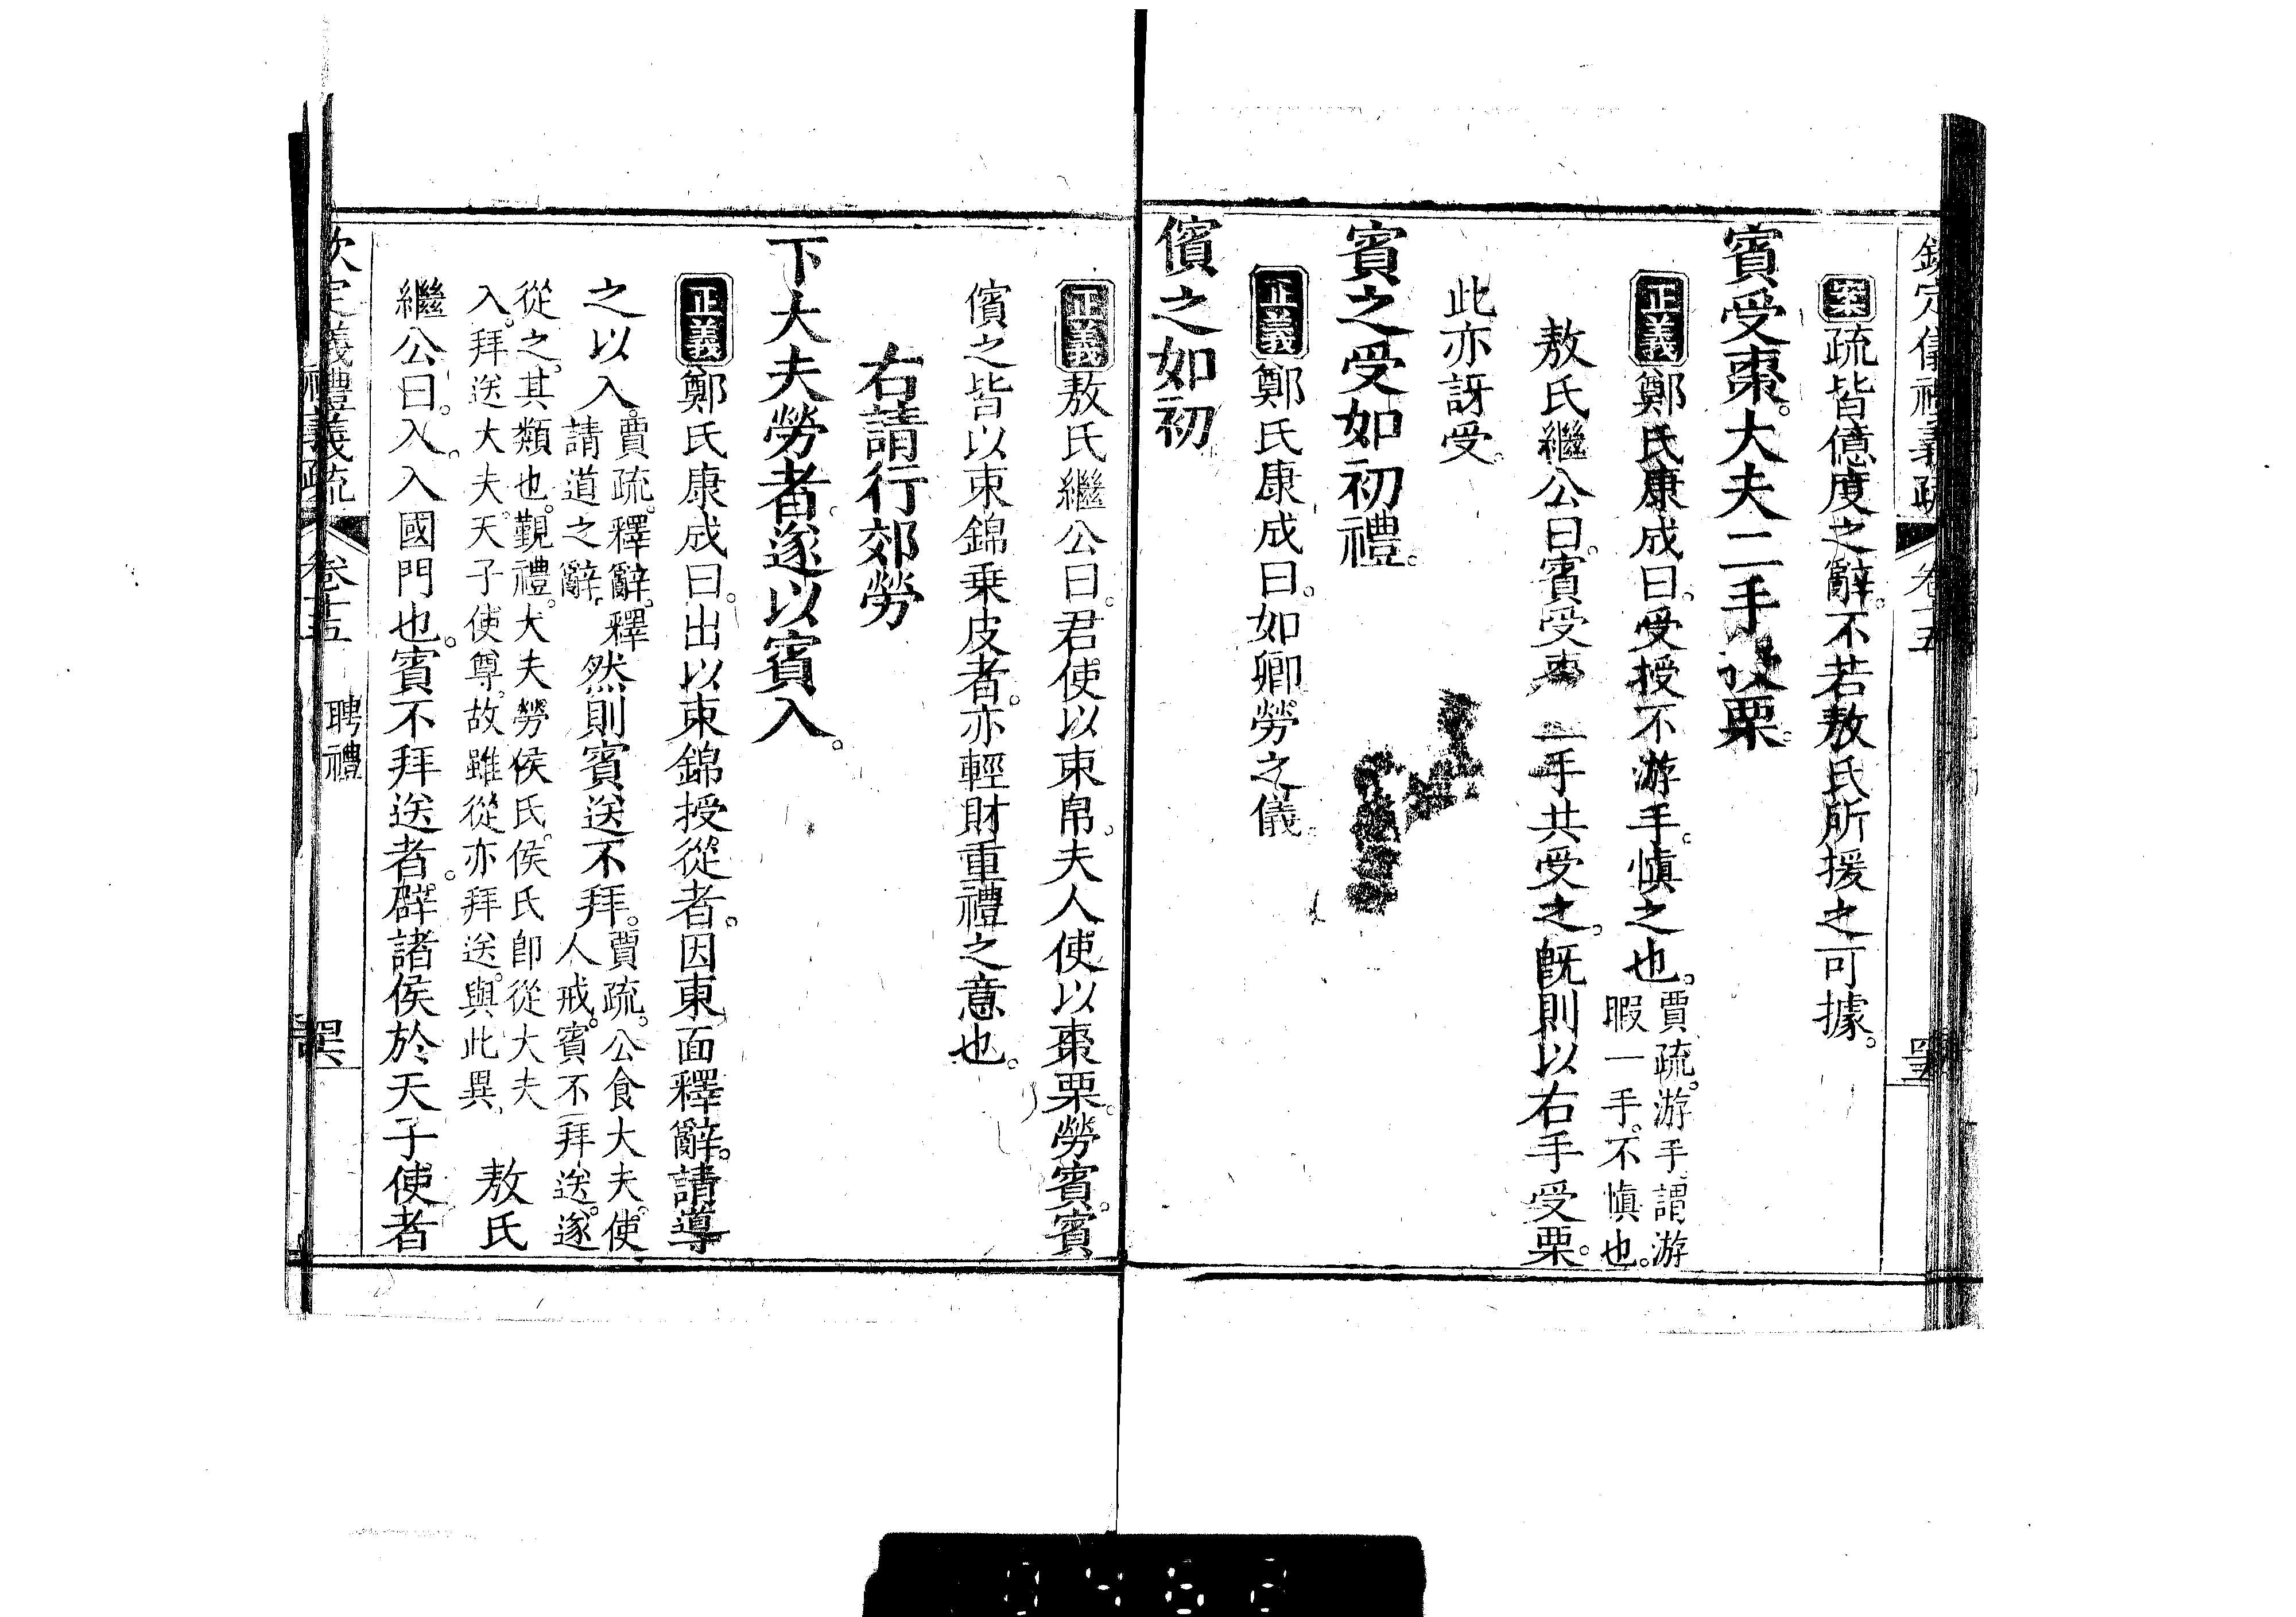 欽定儀禮義疏 卷十五
案疏皆億度之辭。不若敖氏所援之可據。
賓受棗。大夫二手授栗。
正義鄭氏康成曰。受授不游手。慎之也。賈疏。游手。謂游
暇一手。不慎也。
敖氏繼公曰。賓受棗。二手共受之。既則以右手受栗。
此亦訝受。
賓之受如初禮。
正義鄭氏康成曰。如卿勞之儀。
儐之如初
正義敖氏繼公曰。君使以束帛。夫人使以棗栗勞賓。賓
儐之皆以束錦乘皮者。亦輕財重禮之意也。
右請行郊勞
下大夫勞者遂以賓入。
正義鄭氏康成曰。出以束錦授從者。因東面釋辭。請導
之以入。賈疏。釋辭。釋
請道之辭。然則賓送不拜。賈疏。公食大夫。使
人戒。賓不拜送。遂
從之。其類也。覲禮。大夫勞侯氏。侯氏即從大夫
入。拜送大夫。天子使尊。故雖從亦拜送。與此異。敖氏
繼公曰。入。入國門也。賓不拜送者。辟諸侯於天子使者
欽定儀禮義疏 卷十五 聘禮